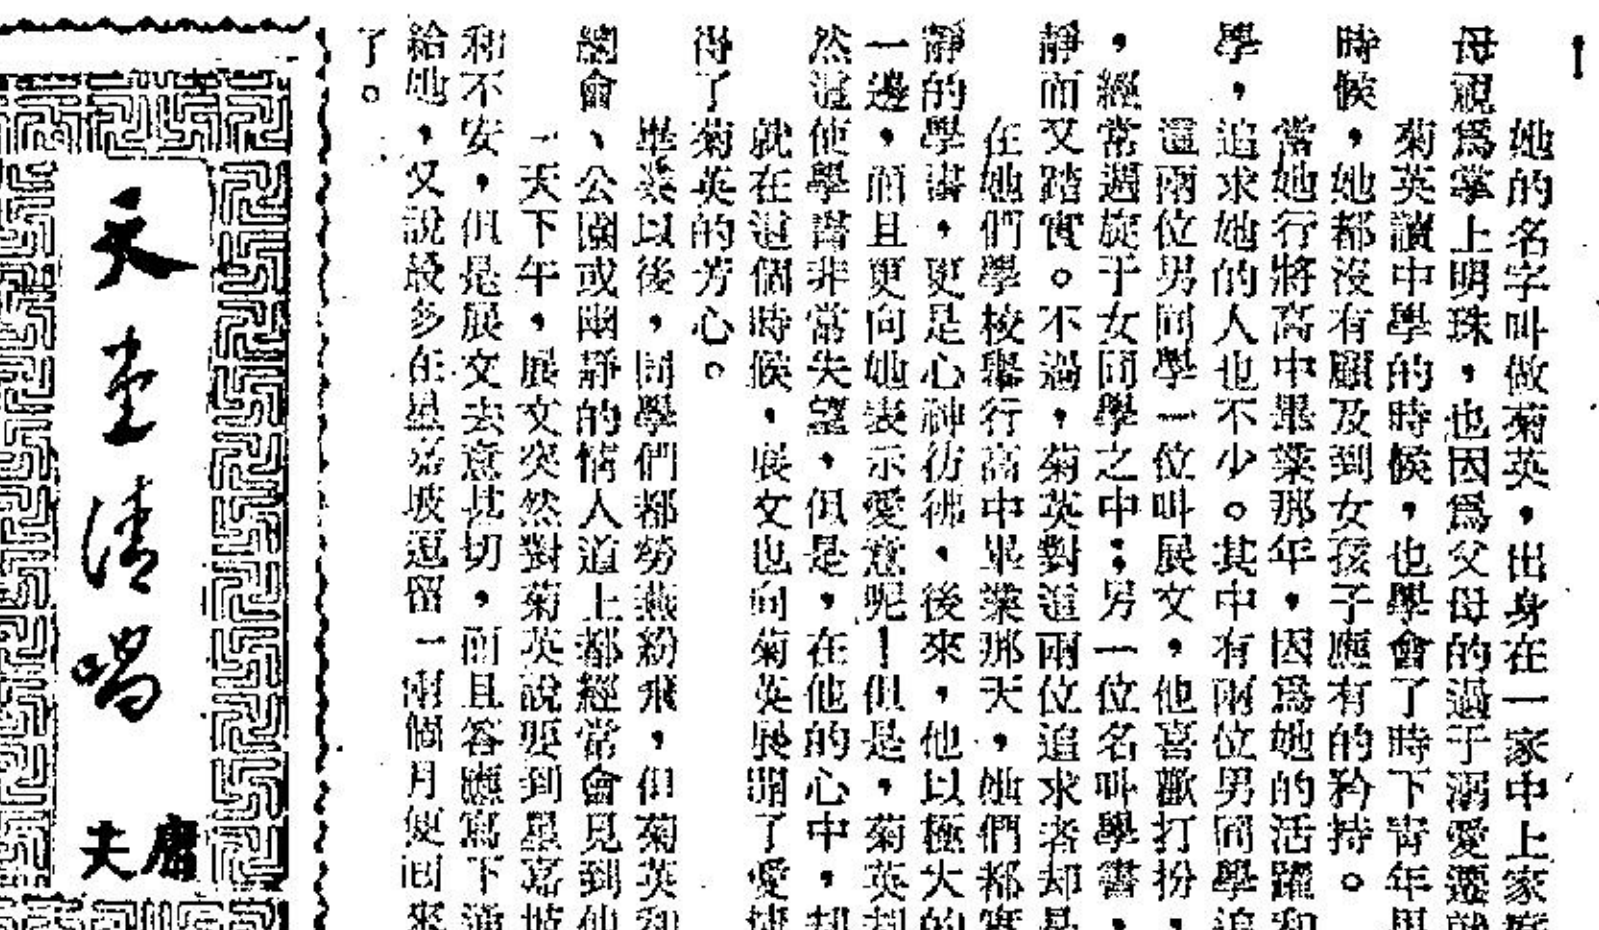 她的名字叫做菊英，出身在一家中上家庭
母視爲掌上明珠，也因爲父母的過于溺愛遷就
菊英讀中學的時候，也學會了時下青年男
時候，她都沒有顧及到女孩子應有的矜持。
當她行將高中畢業那年，因爲她的活躍和
學，追求她的人也不少。其中有兩位男同學追
這兩位男同學一位叫展文，他喜歡打扮，
，經常週旋于女同學之中；男一位名叫學書，
靜而又踏實。不過，菊英對這兩位追求者却是
在她們學校舉行高中畢業那天，她們都實
靜的學書，更是心神彷彿，後來，他以極大的
一邊，而且更向她表示愛意呢！但是，菊英却
然這使學書非常失望，但是，在他的心中，却
就在這個時候，展文也向菊英展開了愛情
得了菊英的芳心。
畢業以後，同學們都勞燕紛飛，但菊英和
總會、公園或幽靜的情人道上都經常會見到他
一天下午，展文突然對菊英說要到星嘉坡
和不安，但是展文去意甚切，而且答應寫下通
給她，又說最多在星嘉坡逗留一兩個月便回來
了。
天堂清唱
庸夫